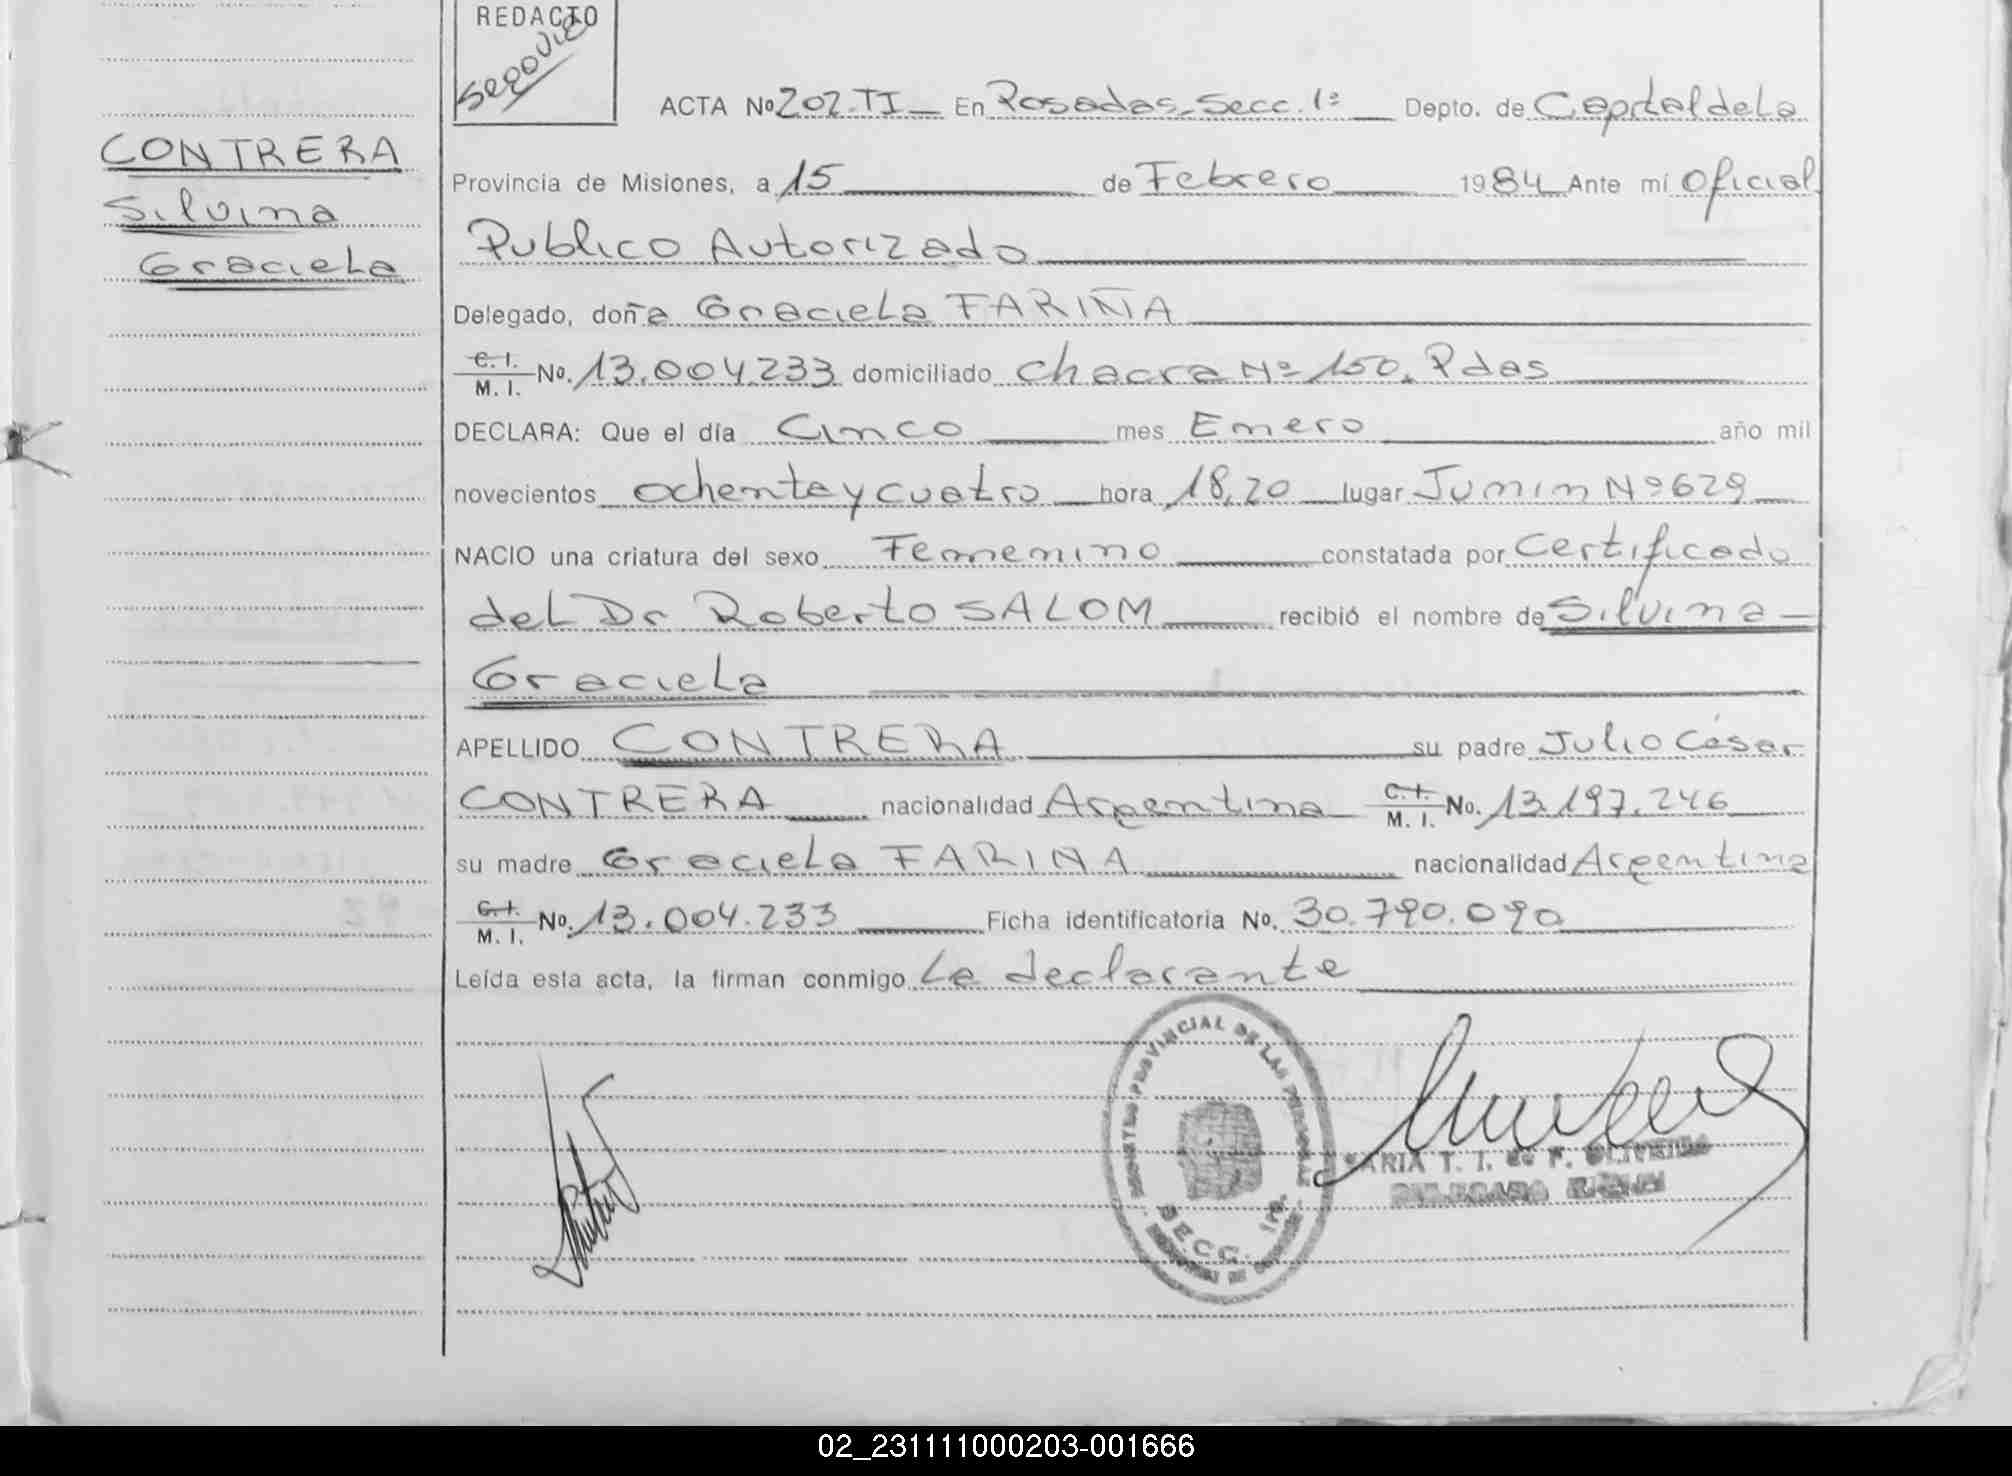 REDACTO
Segovia
ACTA Nº 202-TI En Posadas-Secc. 1ª Depto. de Capital de La
CONTRERA
Silvina
Graciela
Provincia de Misiones, a 15 de Febrero 1984 Ante mí Oficial
Publico Autorizado
Delegado, doña Graciela FARIÑA
C. I. / M. I. No. 13.004.233 domiciliado Chacra Nº 150, Pdas
DECLARA: Que el día Cinco mes Enero año mil
novecientos ochenta y cuatro hora 18,20 lugar Junin Nº 629
NACIO una criatura del sexo Femenino constatada por Certificado
del Dr Roberto SALOM recibió el nombre de Silvina
Graciela
APELLIDO CONTRERA su padre Julio César
CONTRERA nacionalidad Argentina C. I. / M. I. No. 13.197.246
su madre Graciela FARIÑA nacionalidad Argentina
C. I. / M. I. No. 13.004.233 Ficha identificatoria No. 30.790.090
Leída esta acta, la firman conmigo La declarante
PROVINCIAL DE LAS PERSONAS
SECC. 1ra.
MARIA T. I. de F. OLIVEIRA
02_231111000203-001666